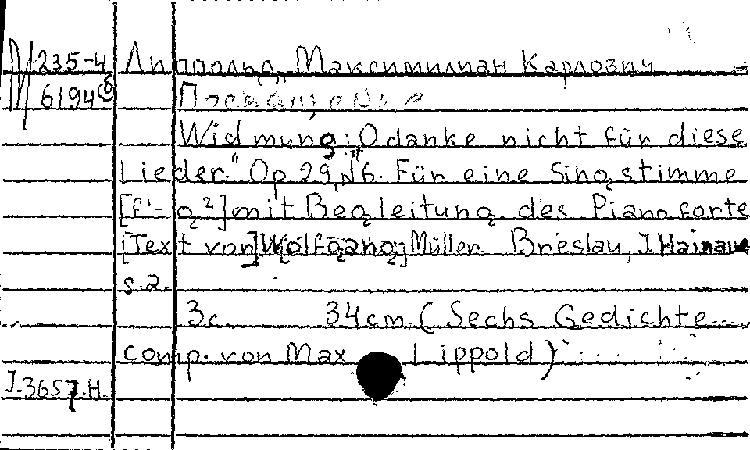 М 235-4 Липпольд, Максимилиан Карлович
6194 Посвящение
Widmung: „O danke nicht für diese
Lieder." Op. 29, №6. Für eine Singstimme
[f¹-g²] mit Begleitung des Pianoforte
[Text von] W[olfgang] Müller. Breslau, J. Hainauer
s.a.
3c. 34cm. (Sechs Gedichte
comp. von Max Lippold)
J.3657.H.